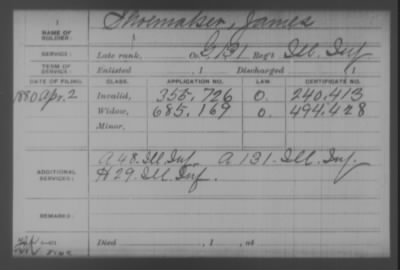 1
NAME OF SOLDIER: Shoemaker, James
SERVICE: Late rank, Co. G, 131 Reg't Ill. Inf.
TERM OF SERVICE: Enlisted , 1 Discharged , 1
DATE OF FILING. CLASS. APPLICATION NO. LAW. CERTIFICATE NO.
1880 Apr. 2 Invalid, 355,726 O. 240,413
Widow, 685,169 O. 494,428
Minor,
ADDITIONAL SERVICES: A 48. Ill. Inf. A 131. Ill. Inf.
H 29. Ill. Inf.
REMARKS:
Died , 1 , at